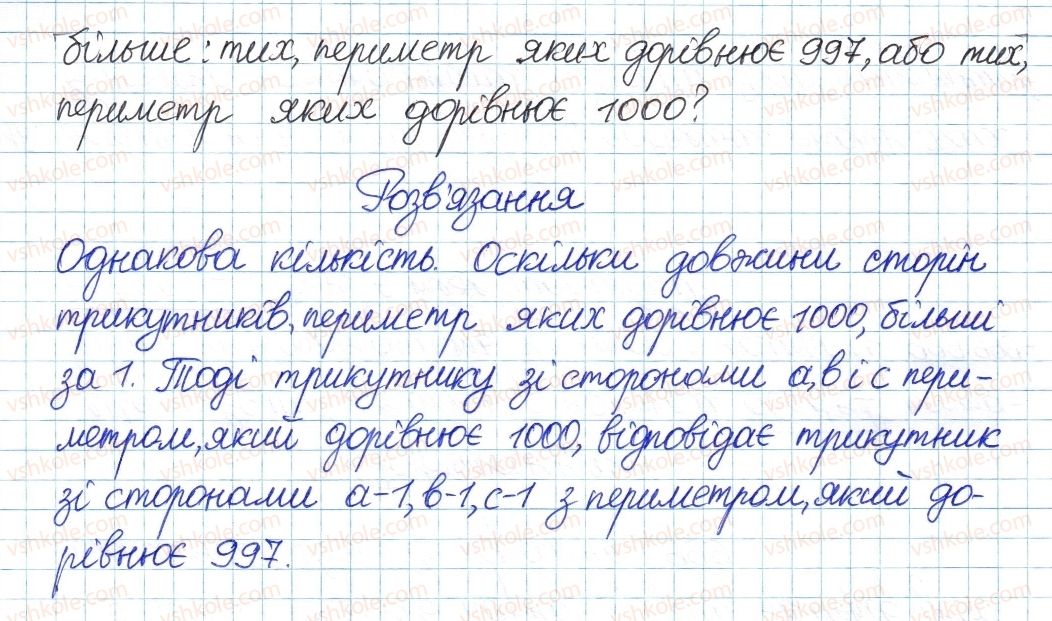 більше: тих, периметр яких дорівнює 997, або тих,
периметр яких дорівнює 1000?
Розв'язання
Однакова кількість. Оскільки довжини сторін
трикутників, периметр яких дорівнює 1000, більші
за 1. Тоді трикутнику зі сторонами а, в і с пери-
метром, який дорівнює 1000, відповідає трикутник
зі сторонами а-1, в-1, с-1 з периметром, який до-
рівнює 997.